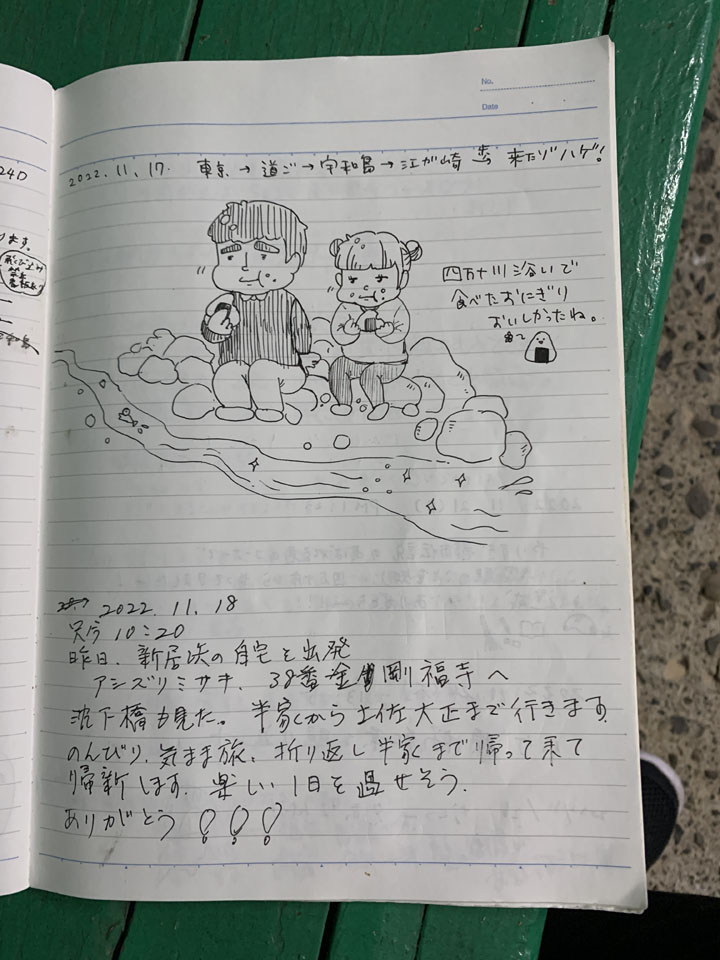 No.
Date
2022.11.17. 東京→道ご→宇和島→江が崎 歩→ 来たゾハゲ!
四万十川沿いで
食べたおにぎり
おいしかったね。
2022.11.18
只今 10:20
昨日、新居浜の自宅を出発
アシズリミサキ、38番金剛福寺へ
沈下橋も見た。半家から土佐大正まで行きます
のんびり、気まま旅、折り返し半家まで帰って来て
帰新します。楽しい1日を過せそう。
ありがとう!!!
240
ます。